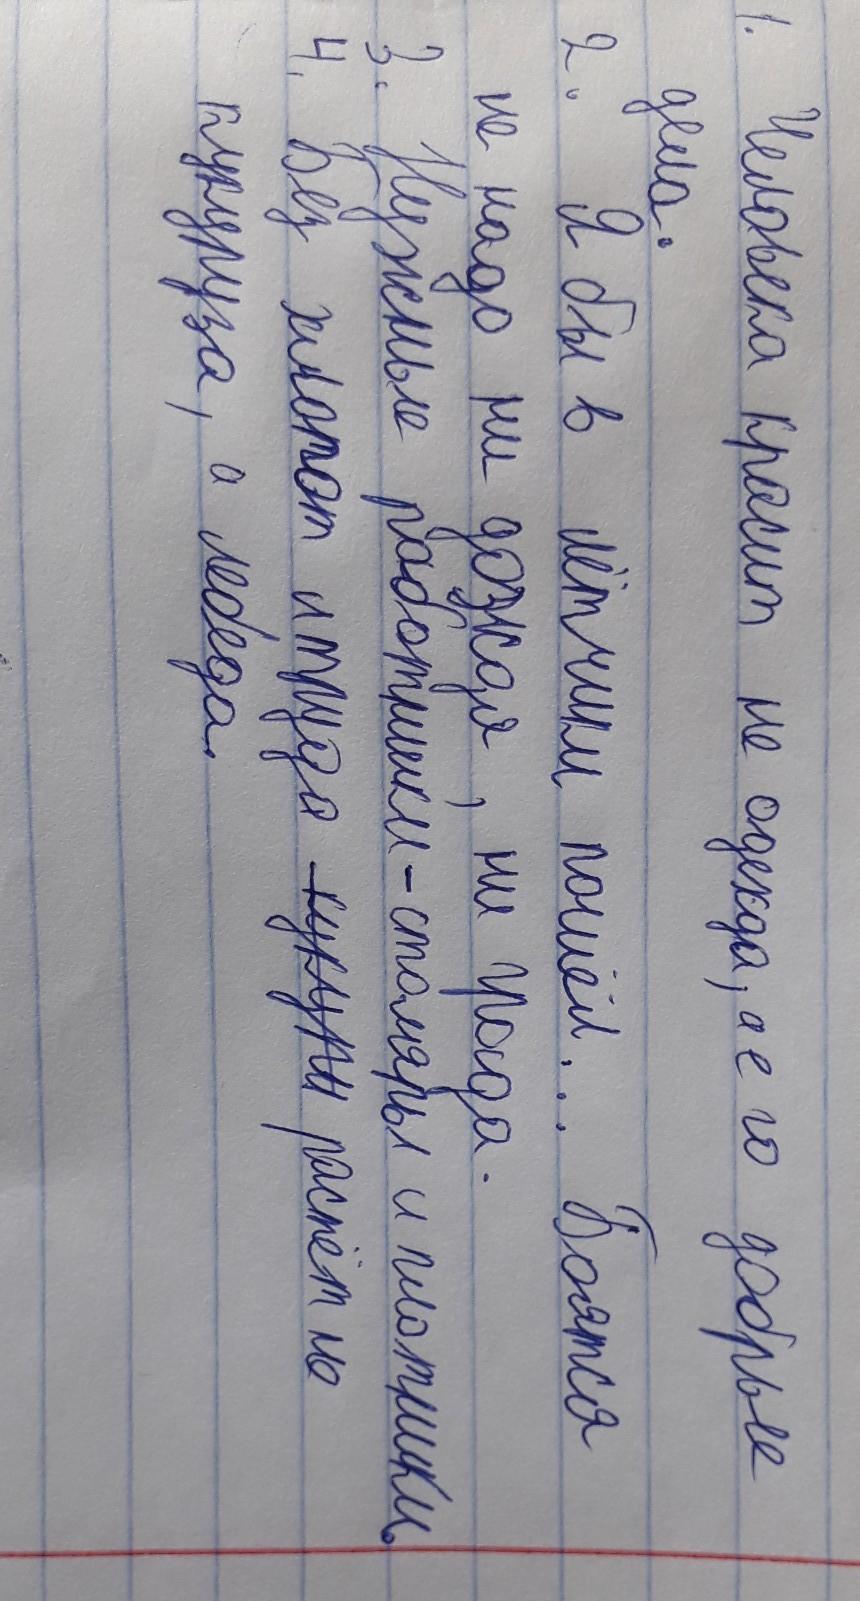 1. Человека красит не одежда, а его добрые
дела.
2. Я бы в лётчики пошёл... Боятся
не надо ни дождя, ни града.
3. Нужные работники-столяры и плотники.
4. Без хлопот и труда кукури растёт не
кукуруза, а лебеда.